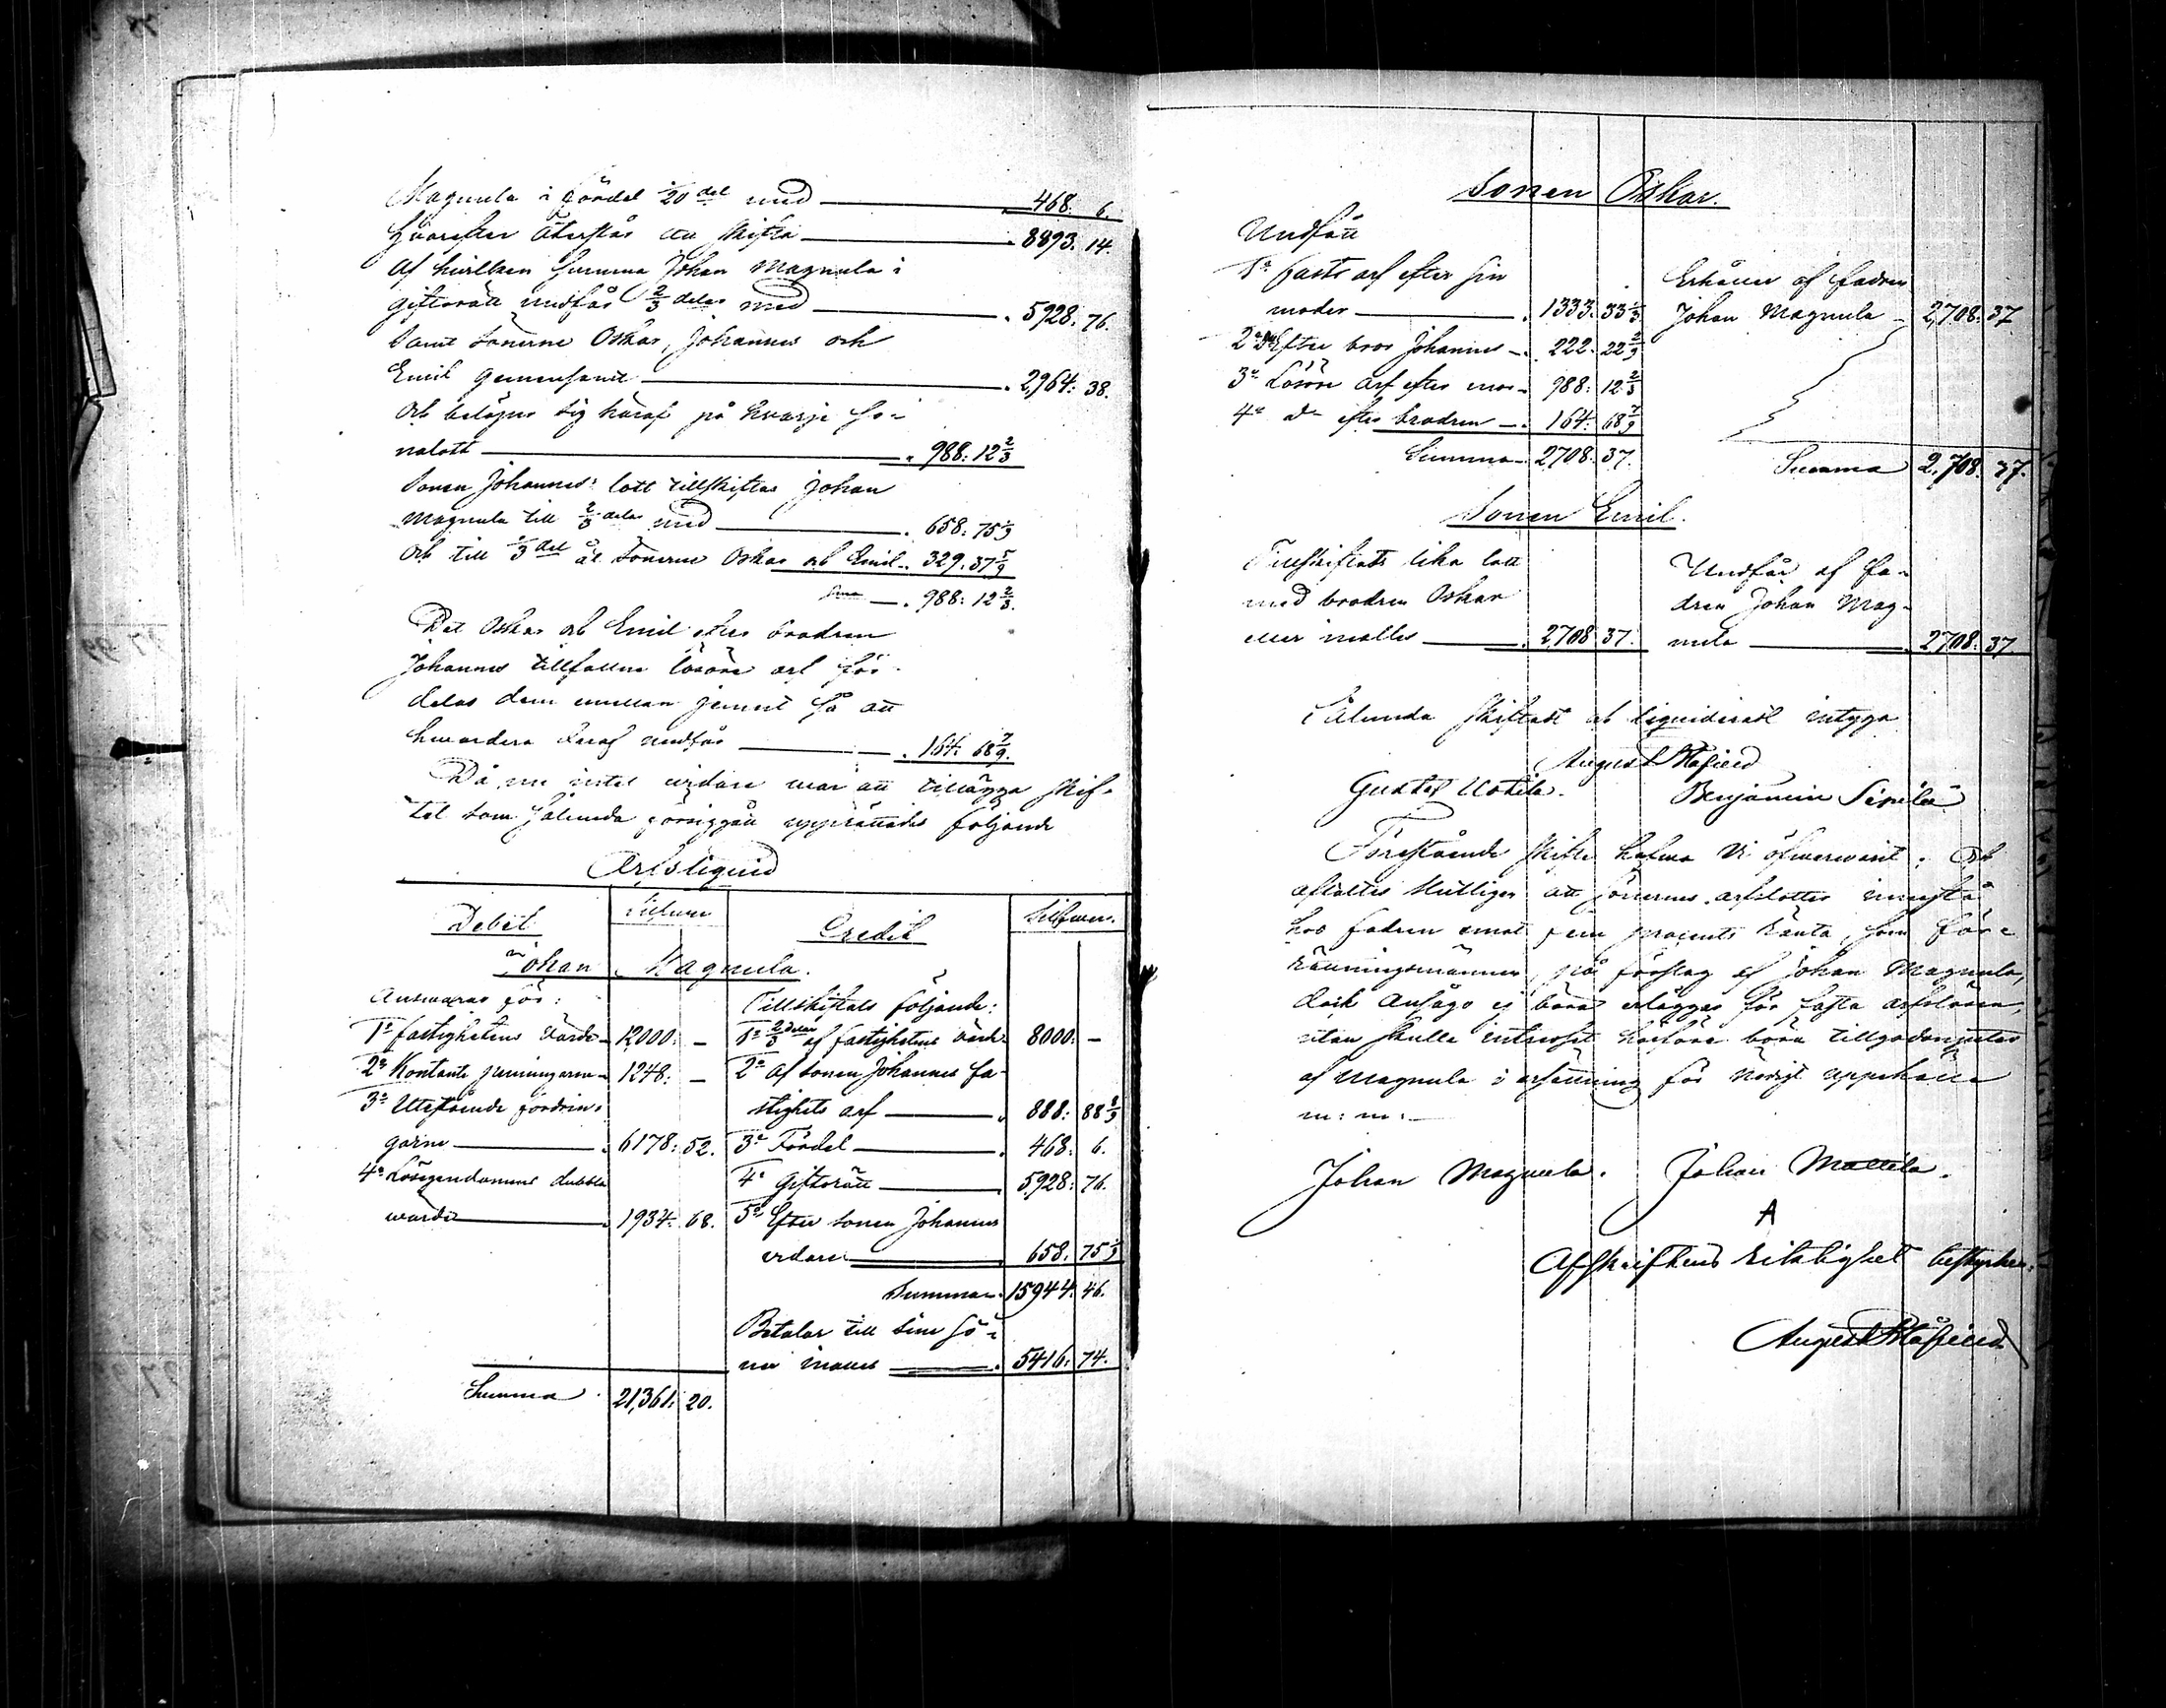 Magnula i fördel 1/20 del med — 468. 6.
Hvarefter återstår att skifta — 8893. 14.
Af hvilken summa Johan Magnula i
giftorätt undfår 2/3 delar med — 5928. 76.
Samt sönerne Oskar, Johannes och
Emil gemensamt — 2,964. 38.
Och belöper sig häraf på hvarje sö-
nalott — 988: 12 2/3
Sonen Johannes' lott tillskiftas Johan
Magnula till 2/3 delar med — 658: 75 1/9
Och till 1/3 del åt sönerne Oskar och Emil 329. 37 5/9
S:ma — 988: 12 2/3.
Det Oskar och Emil efter brodren
Johannes tillfallne lösöre arf för-
delas dem emellan jemnt så att
hwardera deraf undfår — 164: 68 7/9.
Då nu intet widare war att tillägga skif-
tet som sålunda försiggått upprättades följande
Arfsliquid
Debet Silfwer Credit Silfwer.
Johan Magnula.
Answarar för: Tillskiftats följande:
1º fastighetens värde 12,000: — 1º 2/3 delar af fastighetens värde 8000: —
2º Kontante penningarne 1248: — 2º af sonen Johannes fa-
3º Utestående fordrin- stighets arf — 888: 88 8/9
garne — 6178: 52. 3º Fördel — 468: 6.
4º Lösegendomens dubbla 4º Giftorätt — 5,928: 76.
wärde — 1934: 68. 5º Efter sonen Johannes
widare — 658: 75 1/9
Summa 15944: 46.
Betalar till sine sö-
ner inalles — 5416: 74.
Summa 21,361: 20.
Sonen Oskar.
Undfått
1º fasts arf efter sin Erhåller af fadren
moder — 1333: 33 1/3 Johan Magnula — 2,708: 37
2º Dº Efter bror Johannes — 222: 22 2/9
3º Lösöre arf efter mor — 988: 12 2/3
4º dº efter brodren — 164: 68 7/9
Summa 2708: 37. Summa 2,708: 37.
Sonen Emil.
Tillskiftats lika lott Undfår af fa-
med brodren Oskar dren Johan Mag-
eller inalles — 2708 37. nula — 2708: 37
Sålunda skiftadt och liquideradt intyga
August
Gustaf Uotila. Benjamin
Förestående skifte hafwa Vi öfwerwarit. Och
aftaltes slutligen att sönernes arfslotter innestå
hos fadren emot fem procents ränta, som för-
rättningsmännen, på förslag af Johan Magnula,
dock ansågo ej böra erläggas för fasta arfslösen,
utan skulle intresset härföre böra tillgodonjutas
af Magnula i ersättning för nödigt uppehälle
m: m: —
Johan Magnula. Johan Mattila.
A
Afskriftens riktighet bestyrker:
August